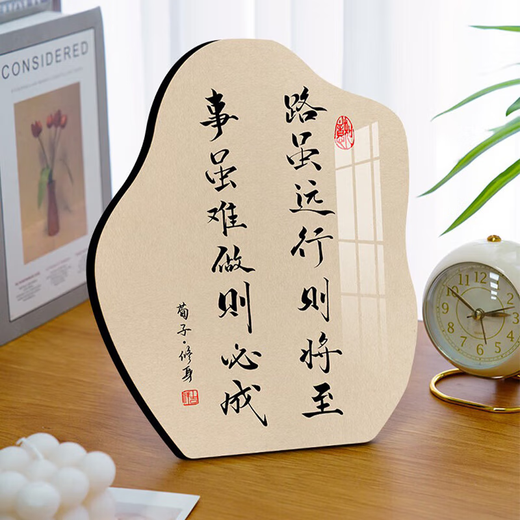 路虽远行则将至
事虽难做则必成
荀子·修身
CONSIDERED